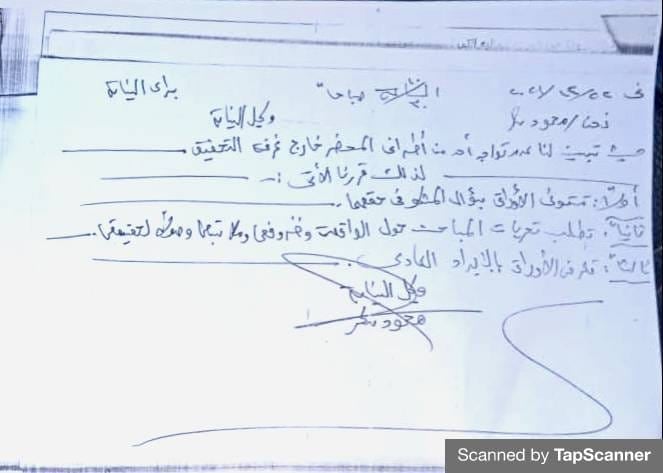 الساعة صباحاً بسراى النيابة
نحن / محمود وكيل النيابة
حيث تبين لنا عدم تواجد أحد من أطراف المحضر خارج غرفة التحقيق
لذلك قررنا الآتى :-
أولاً : تستوفى الأوراق بسؤال
ثانياً : تطلب تحريات المباحث حول الواقعة وظروفها وملابساتها وصولاً لحقيقتها .
ثالثاً : الأوراق بالإيراد العادى .
وكيل النيابة
محمود
Scanned by TapScanner